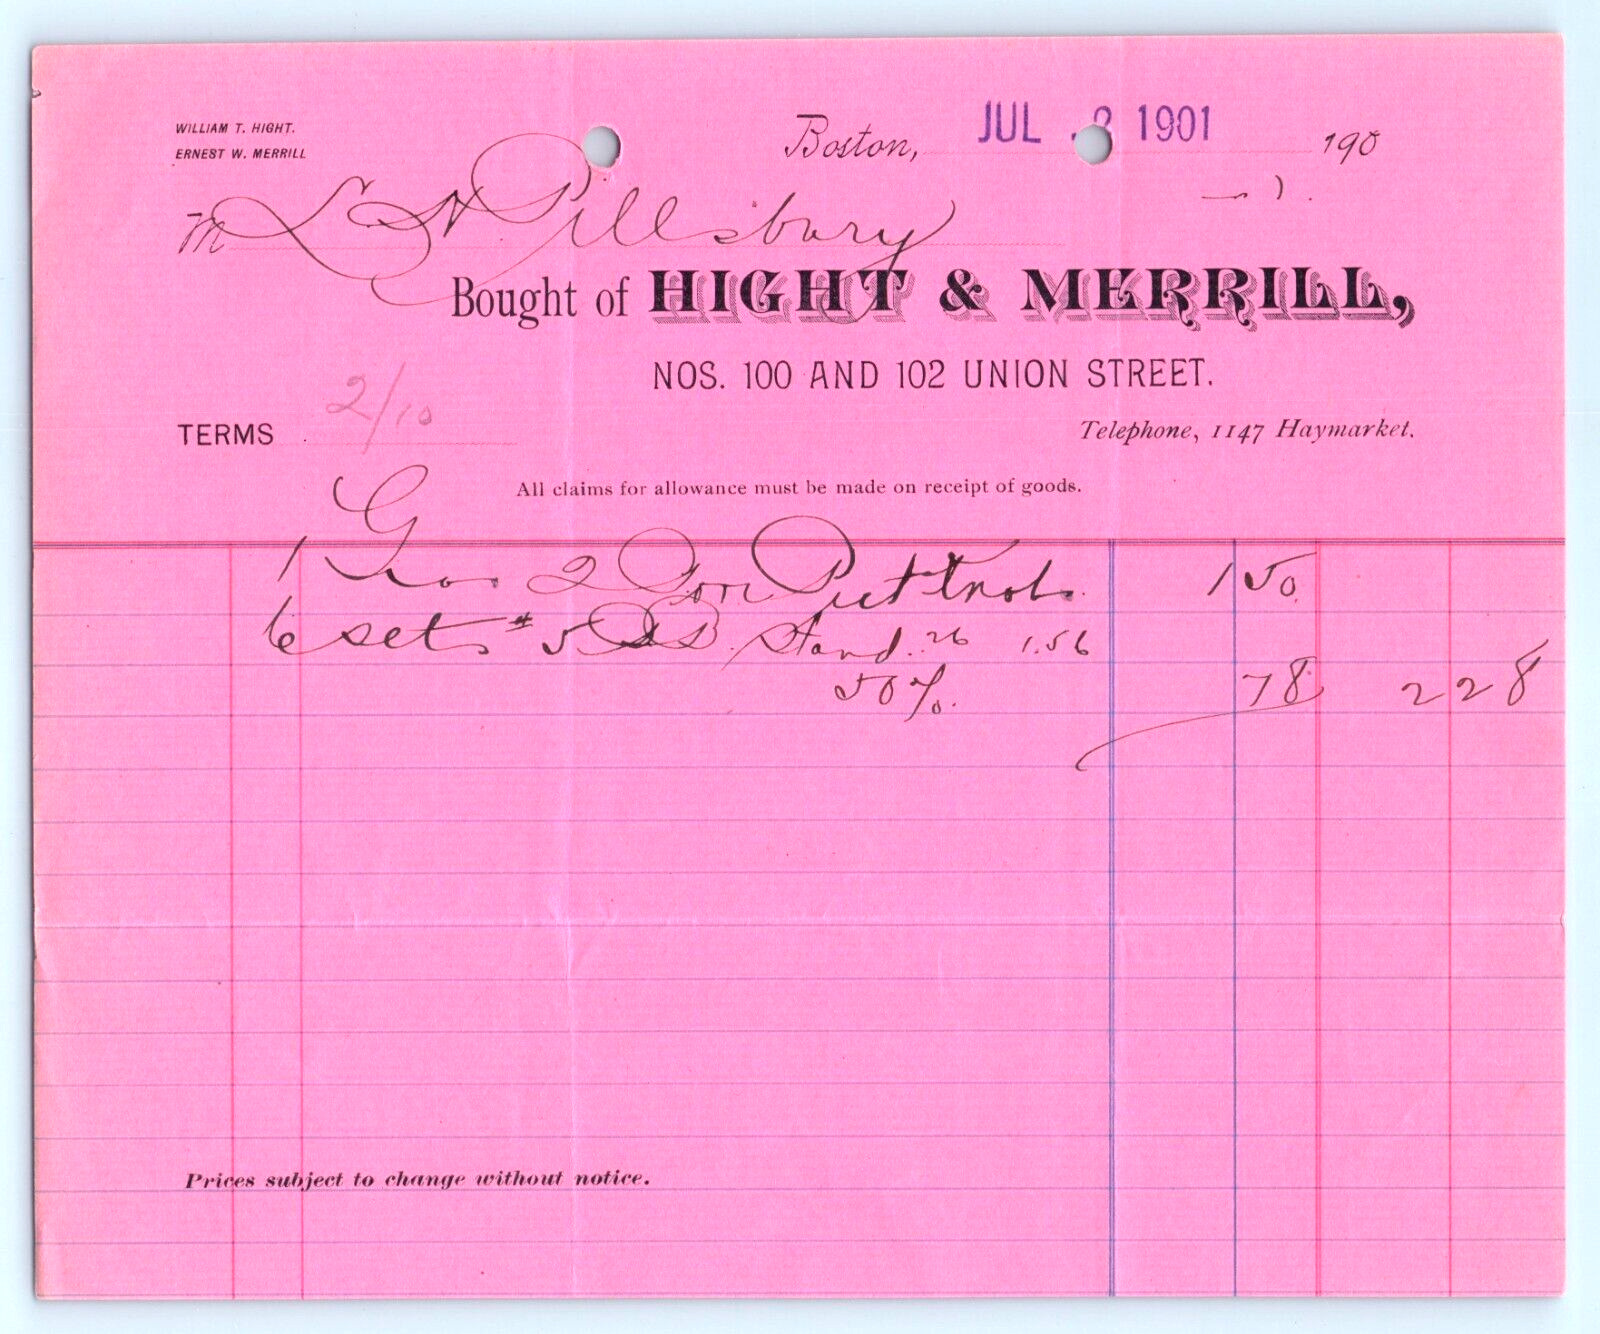 WILLIAM T. HIGHT.
ERNEST W. MERRILL
Boston, JUL 2 1901 190
M L N Pillsbury
Bought of HIGHT & MERRILL,
NOS. 100 AND 102 UNION STREET.
TERMS 2/10
Telephone, 1147 Haymarket.
All claims for allowance must be made on receipt of goods.
1 Gros 2 Pict Knobs 1 50
6 sets # 5 Stand. 26 1.56
50%. 78 2 28
Prices subject to change without notice.